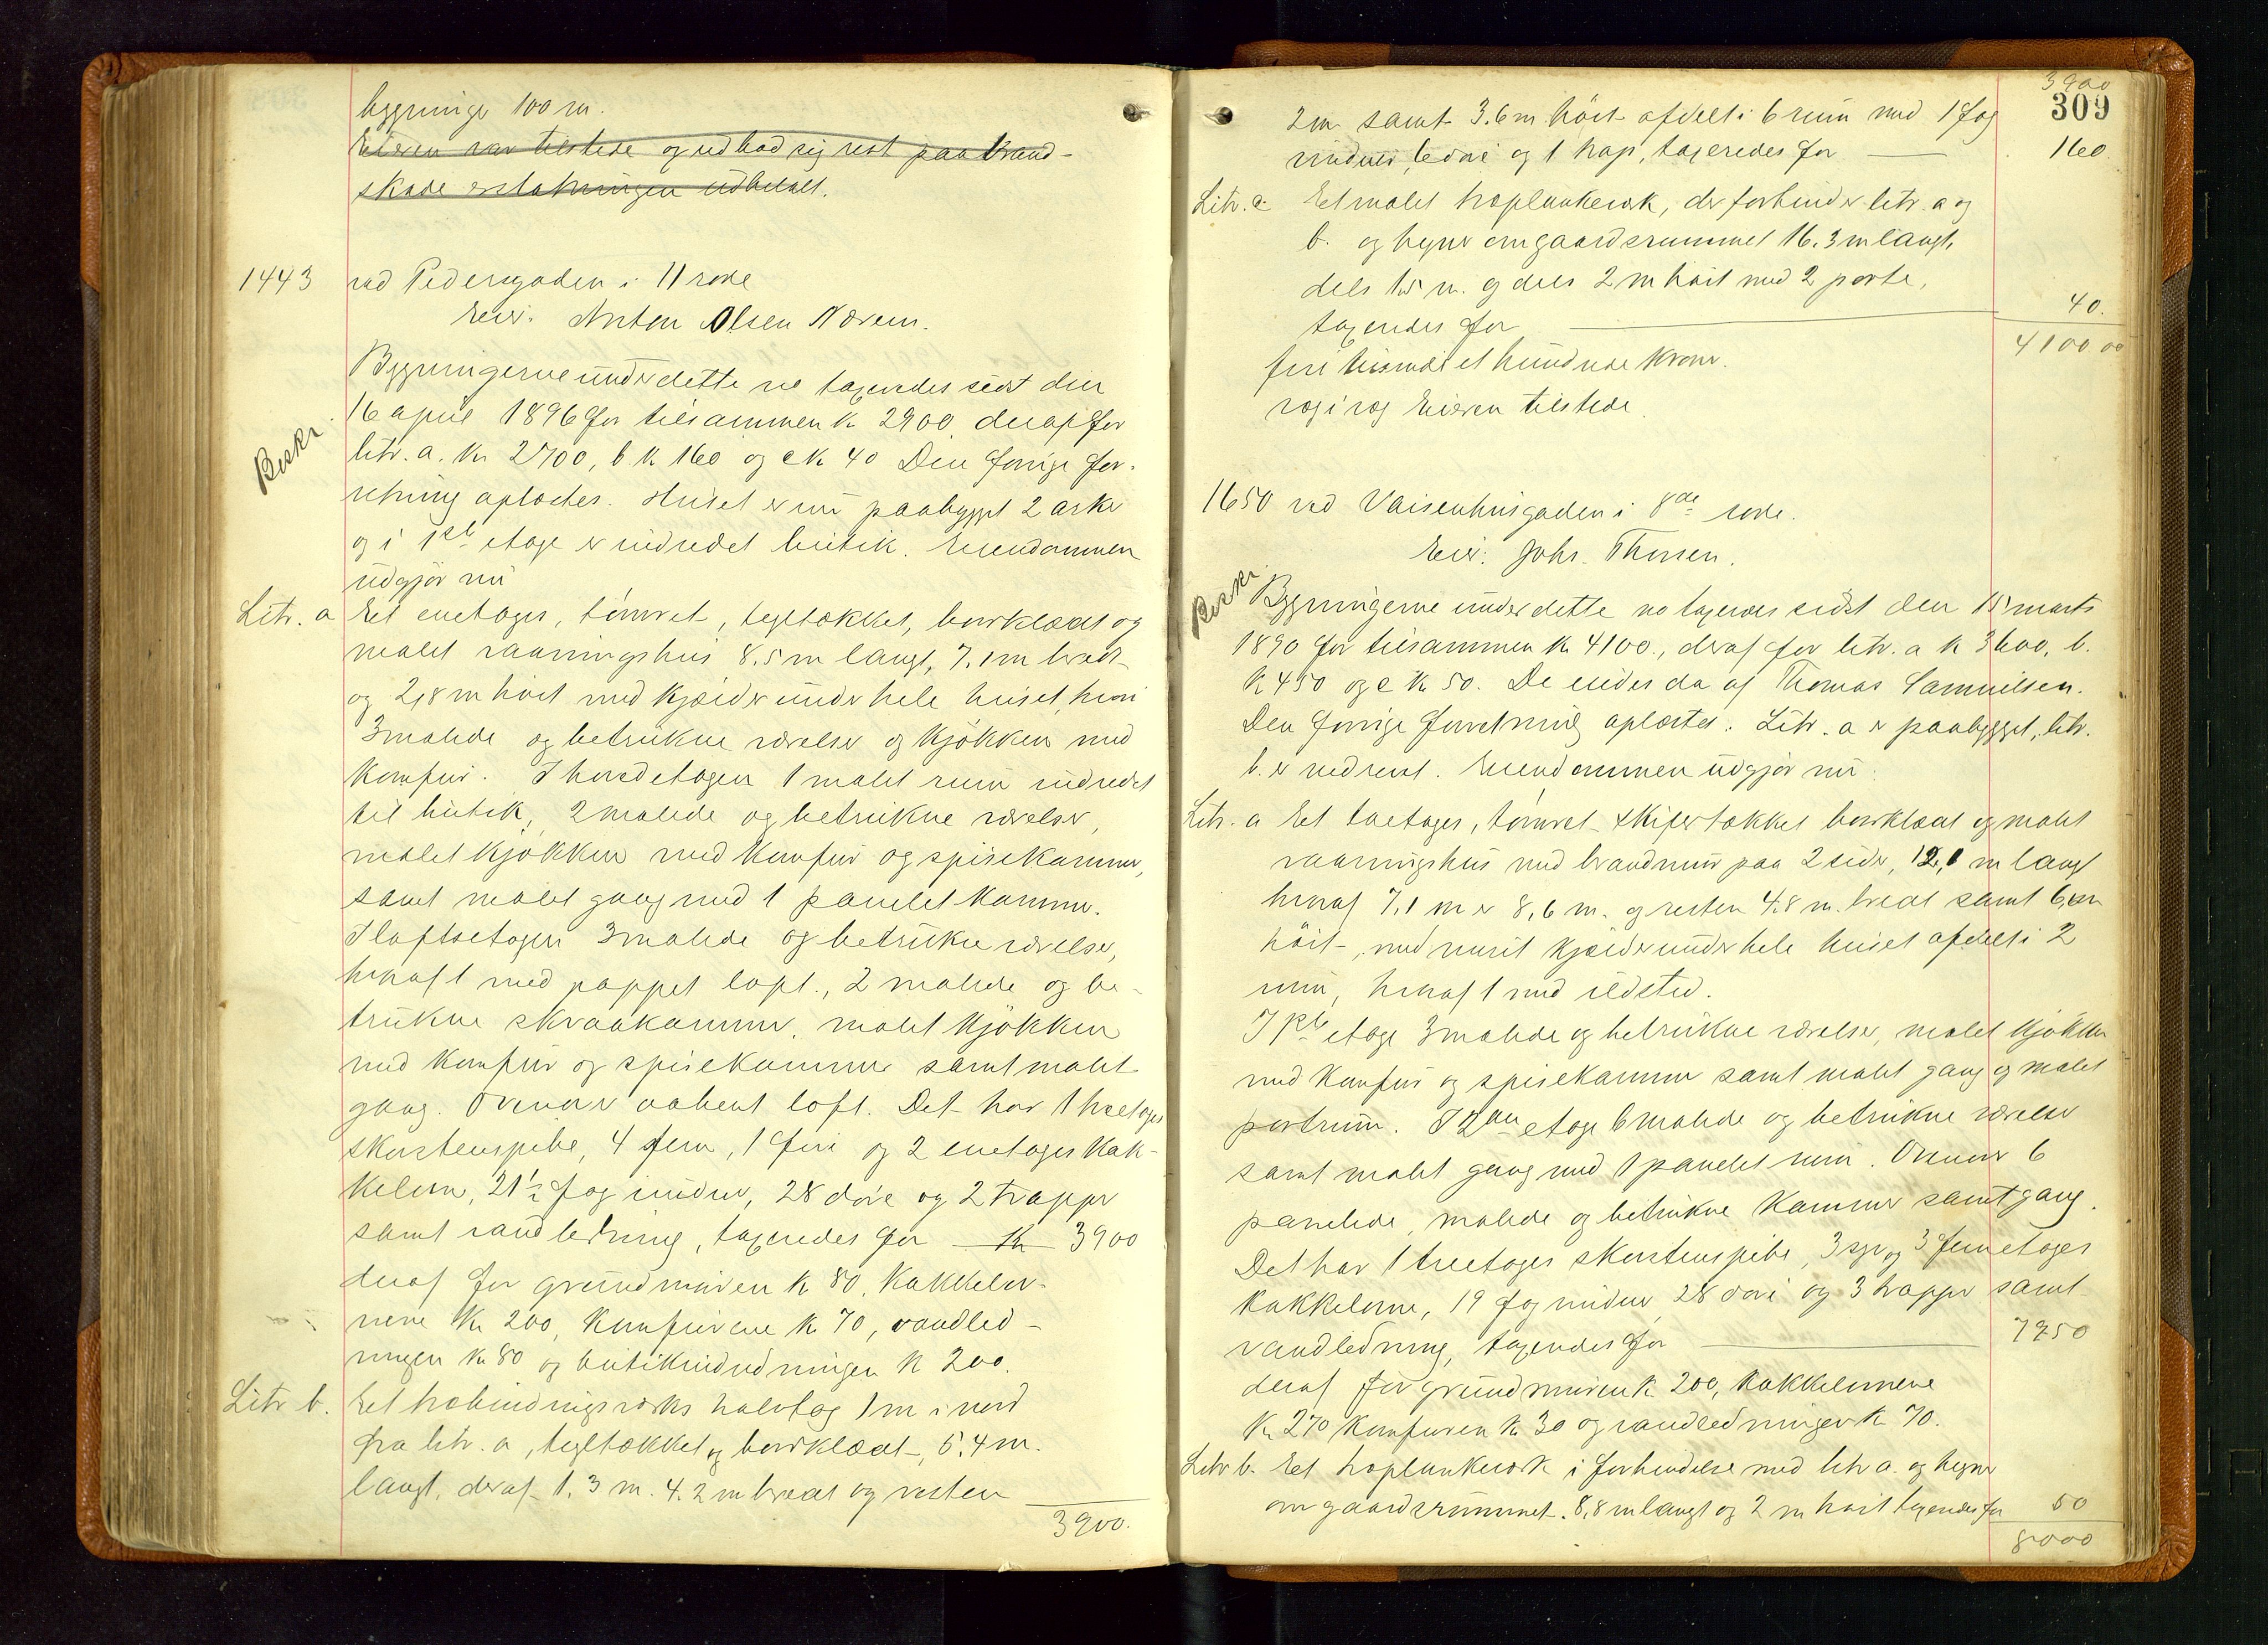 bygninge 100 m.
Eieren var tilstede og udbad sig ret paa brand-
skade erstatningen udbetalt.
1443 ved Pedersgaden i 11 rode
Eier: Anton Olsen Nærem.
Beskr.
Bygningerne under dette no taxeredes sidst den
16 april 1896 for tilsammen k 2900 deraf for
litr. a. kr 2700, b k 160 og c k 40 Den forrige for-
retning oplæstes. Huset er nu paabygget 2 arke
og i 1ste etage er indredet butik. Eiendommen
udgjør nu
Litr. a Et enetages, tømret, tegltækket, bordklædt og
malet vaaningshus 8.5 m langt, 7.1 m bredt
og 2,8 m høit med kjælder under hele huset, hvori
3 malede og betrukne værelser og kjøkken med
komfur. I hovedetagen 1 malet rum indredet
til butik, 2 malede og betrukne værelser,
malet kjøkken med komfur og spisekammer,
samt malet gang med 1 panelet kammer.
I loftsetagen 3 malede og betrukne værelser,
hvoraf 1 med pappet loft., 2 malede og be-
trukne skraakammer, malet kjøkken
med komfur og spisekammer samt malet
gang. Ovenover aabent loft. Det har 1 treetages
skorstenspibe, 4 fem, 1 fire og 2 enetages kak-
kelovne, 21 1/2 fag vinduer, 28 døre og 2 trapper
samt vandledning, taxeredes for Kr 3900
deraf for grundmuren k 80, kakkelov-
nene Kr 200, komfurene k 70, vandled-
ningen kr 80 og butikindredningen k 200.
Litr b. Et træbindingsværks halvtag 1 m i nord
fra litr. a, tegltækket og bordklædt, 5.4 m.
langt, deraf 1.3 m. 4.2 m bredt og resten
3900.
3900
309
2 m samt 3.6 m høit afdelt i 6 rum med 1 fag
vinduer, 6 døre og 1 trap, taxeredes for 160
Litr. c. Et malet træplankeværk, der forbinder litr. a og
b. og hegner om gaardsrummet 16.3 m langt,
dels 1.5 m. og dels 2 m høit med 2 porte,
taxeredes for 40.
4100 00
fire tusinde et hundrede kroner.
og Eieren tilstede.
1650 ved Vaisenhusgaden i 8de rode.
Eier: Johs. Thorsen.
Beskr.
Bygningerne under dette no taxeredes sidst den 15 marts
1890 for tilsammen k 4100., deraf for litr. a k 3600, b.
k 450 og c k 50. De eiedes da af Thomas Samuelsen.
Den forrige forretning oplæstes. Litr. a er paabygget, litr.
b. er nedrevet. Eiendommen udgjør nu:
Litr. a Et toetages, tømret skifertækket bordklædt og malet
vaaningshus med brandmur paa 2 sider, 12,1 m langt
hvoraf 7.1 m er 8,6 m. og resten 4.8 m. bredt samt 6 m
høit, med muret kjælder under hele huset afdelt i 2
rum, hvoraf 1 med ildsted.
I 1ste etage 3 malede og betrukne værelser, malet kjøkken
med komfur og spisekammer samt malet gang og malet
portrum. I 2den etage 6 malede og betrukne værelser
samt malet gang med 1 panelet rum. Ovenover 6
panelede, malede og betrukne kammer samt gang.
Det har 1 treetages skorstenspibe, 3 syv og 3 femetages
kakkelovne, 19 fag vinduer, 28 døre og 3 trapper samt
vandledning, taxeredes for 7950
deraf for grundmuren k 200, kakkelovnene
Kr 270 komfuren kr 30 og vandledningen kr 70.
Litr b. Et træplankeværk i forbindelse med litr a. og hegner
om gaardsrummet. 8,8 m langt og 2 m høit taxeredes for 50
8000